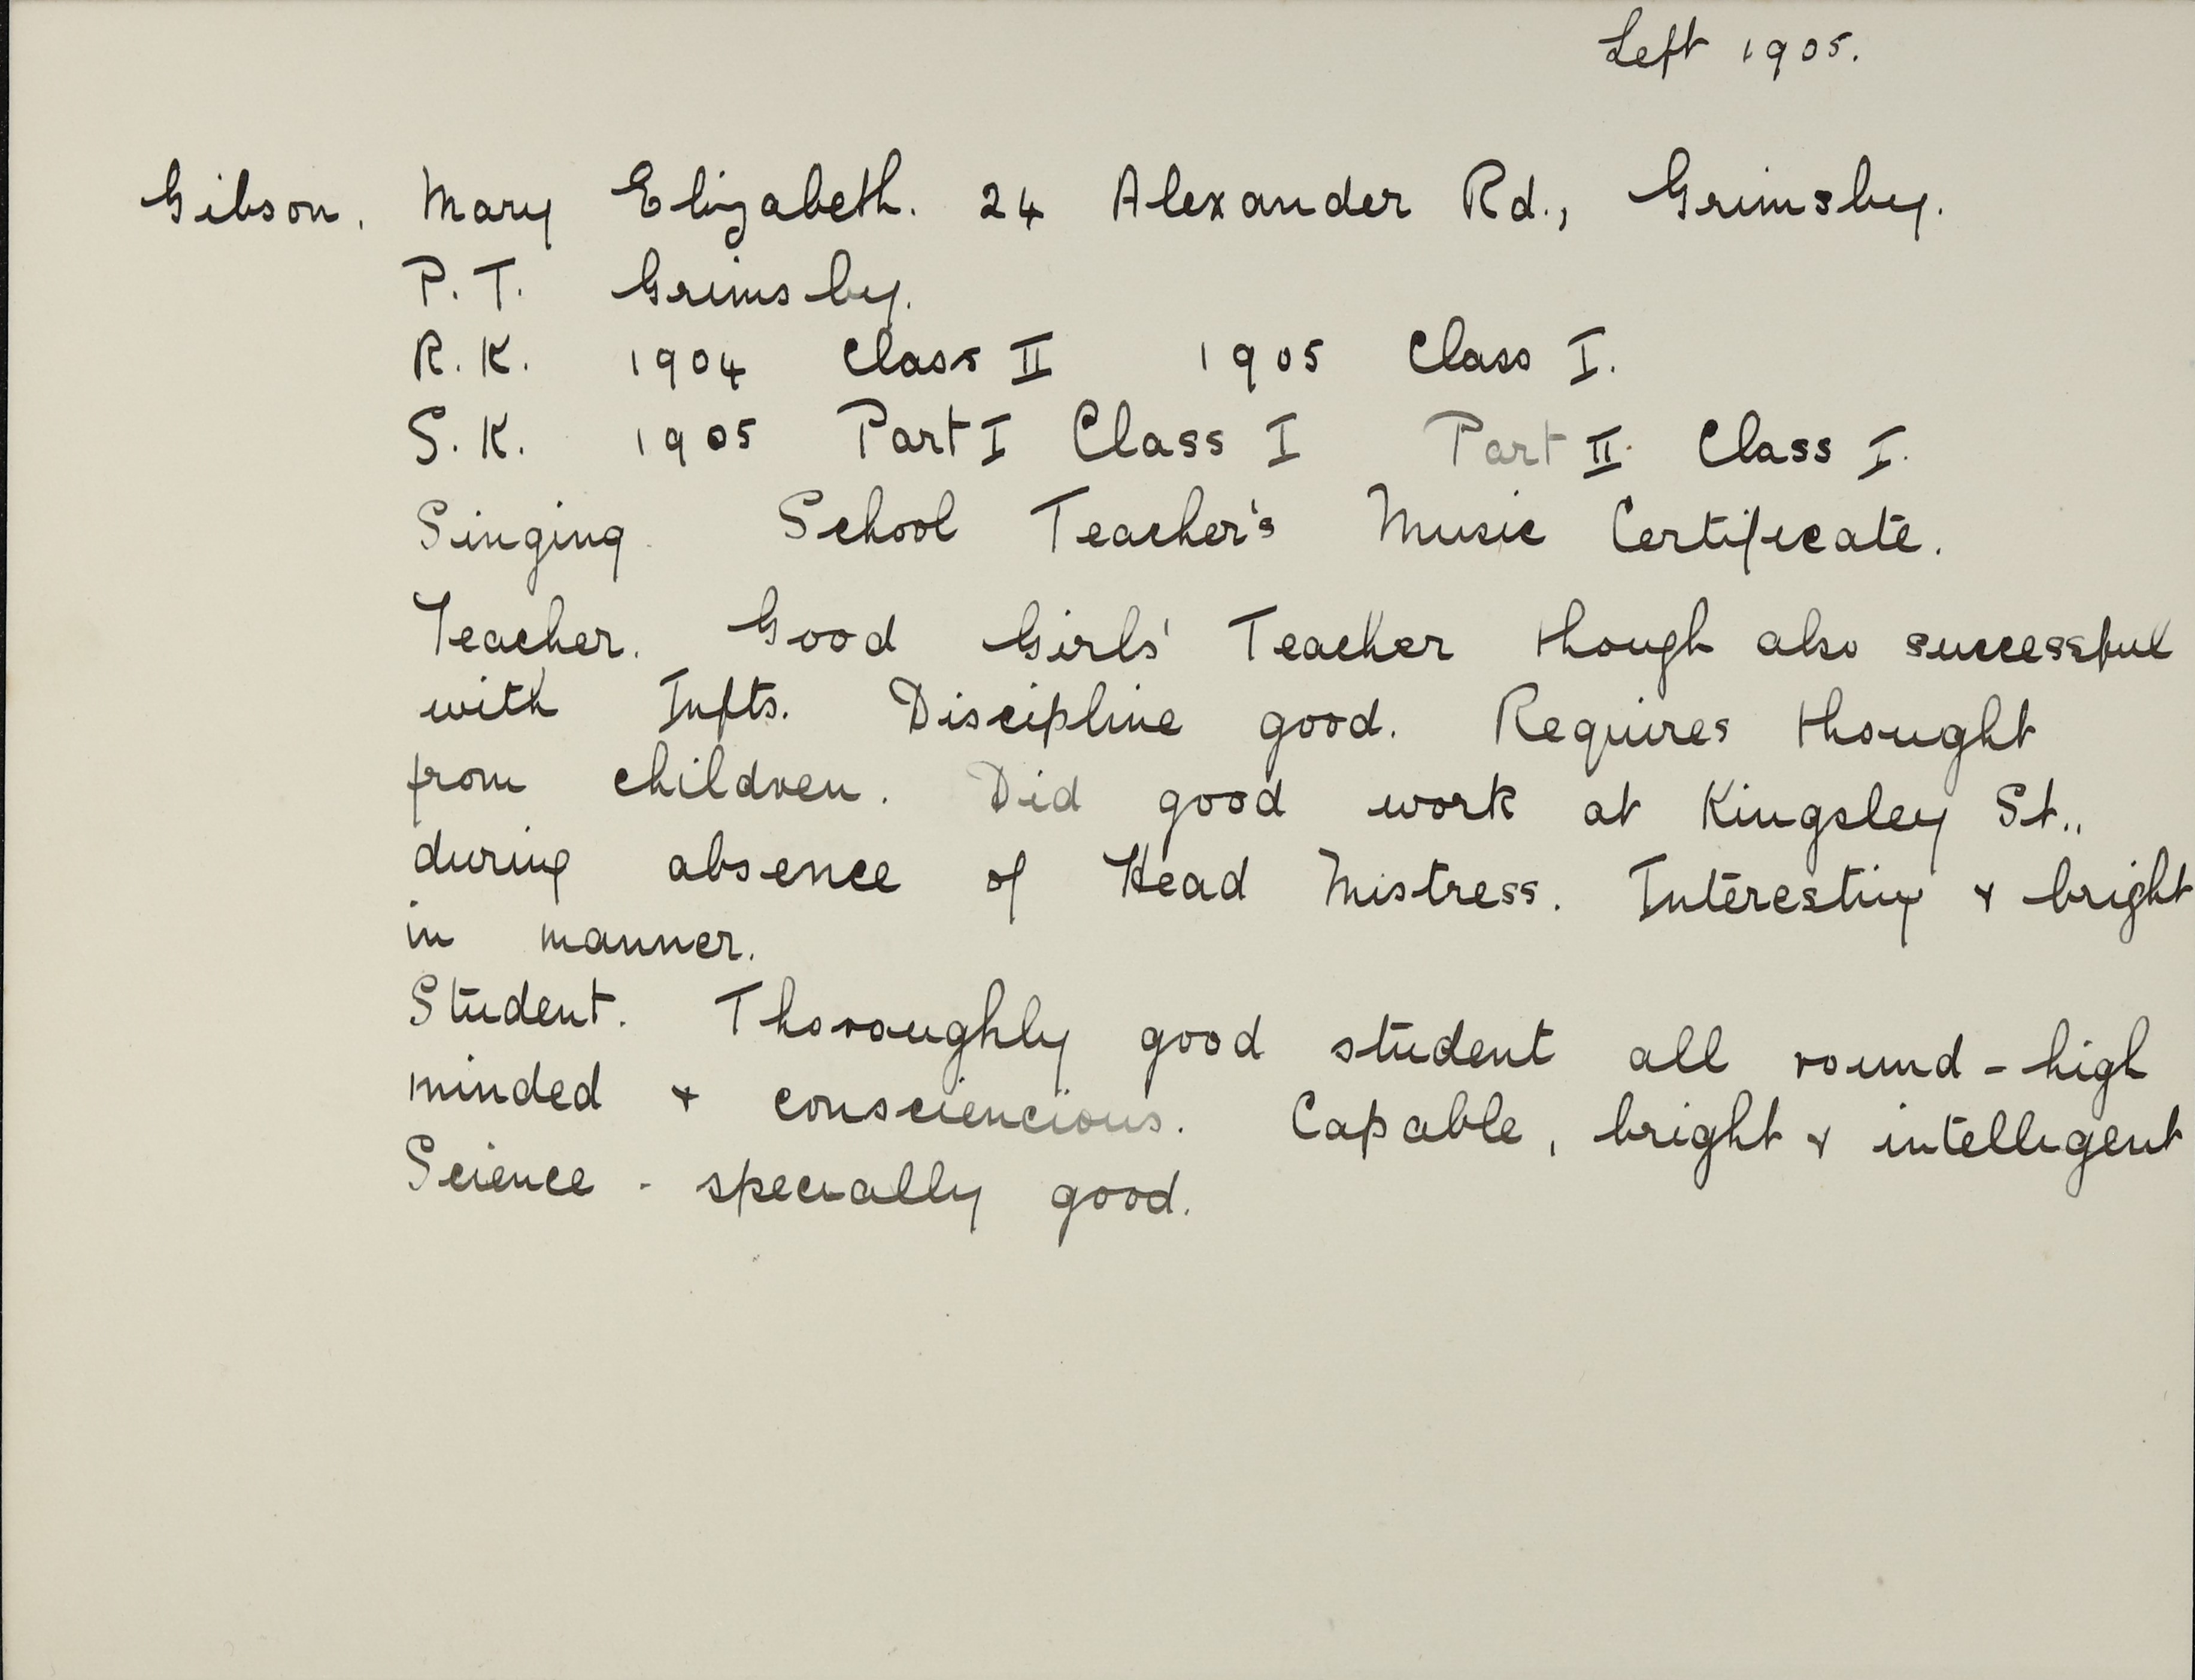 Left 1905.
Gibson. Mary Elizabeth. 24 Alexander Rd., Grimsby.
P.T. Grimsby.
R.K. 1904 Class II 1905 Class I.
S.K. 1905 Part I Class I Part II Class I.
Singing. School Teacher's Music Certificate.
Teacher. Good Girls' Teacher though also successful
with Infts. Discipline good. Requires thought
from children. Did good work at Kingsley St.,
during absence of Head Mistress. Interesting & bright
in manner.
Student. Thoroughly good student all round - high
minded & consciencious. Capable, bright & intelligent
Science - specially good.